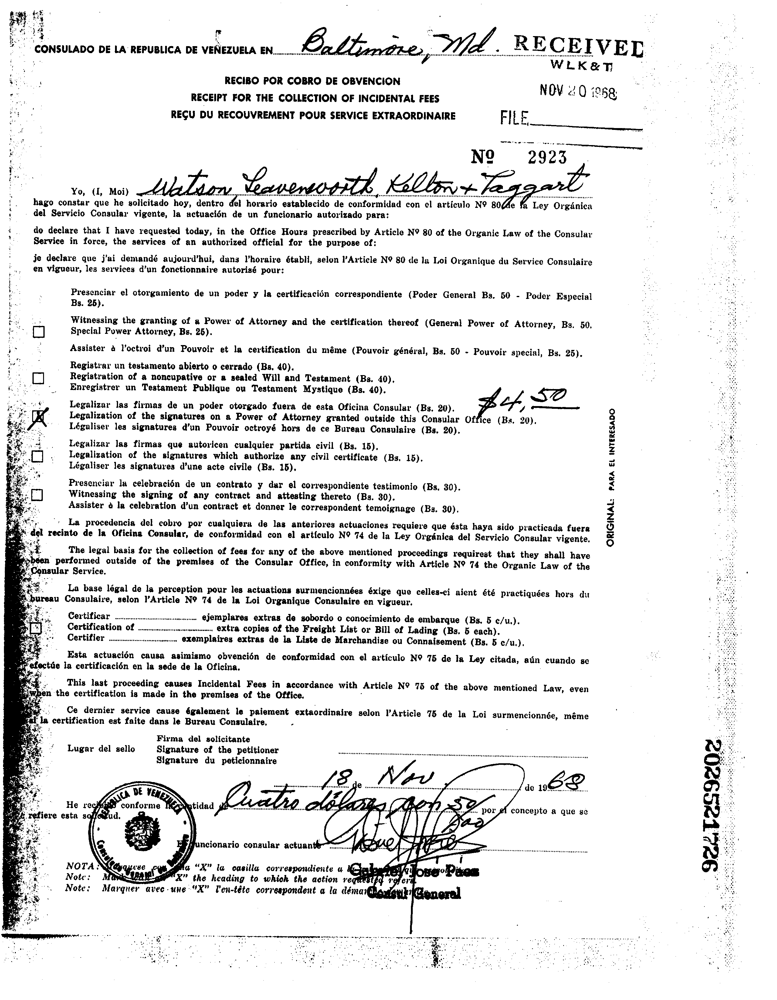 CONSULADO DE LA REPUBLICA DE VENEZUELA EN Baltimore, Md.
RECEIVED
WLK&T
NOV 20 1968
FILE
RECIBO POR COBRO DE OBVENCION
RECEIPT FOR THE COLLECTION OF INCIDENTAL FEES
REÇU DU RECOUVREMENT POUR SERVICE EXTRAORDINAIRE
Nº 2923
Yo, (I, Moi) Watson Leavenworth, Kelton + Taggart
hago constar que he solicitado hoy, dentro del horario establecido de conformidad con el artículo Nº 80 de la Ley Orgánica
del Servicio Consular vigente, la actuación de un funcionario autorizado para:
do declare that I have requested today, in the Office Hours prescribed by Article Nº 80 of the Organic Law of the Consular
Service in force, the services of an authorized official for the purpose of:
je declare que j'ai demandé aujourd'hui, dans l'horaire établi, selon l'Article Nº 80 de la Loi Organique du Service Consulaire
en vigueur, les services d'un fonctionnaire autorisé pour:
Presenciar el otorgamiento de un poder y la certificación correspondiente (Poder General Bs. 50 - Poder Especial
Bs. 25).
Witnessing the granting of a Power of Attorney and the certification thereof (General Power of Attorney, Bs. 50.
Special Power Attorney, Bs. 25).
Assister à l'octroi d'un Pouvoir et la certification du même (Pouvoir général, Bs. 50 - Pouvoir special, Bs. 25).
Registrar un testamento abierto o cerrado (Bs. 40).
Registration of a noncupative or a sealed Will and Testament (Bs. 40).
Enregistrer un Testament Publique ou Testament Mystique (Bs. 40).
$4,50
Legalizar las firmas de un poder otorgado fuera de esta Oficina Consular (Bs. 20).
X Legalization of the signatures on a Power of Attorney granted outside this Consular Office (Bs. 20).
Légaliser les signatures d'un Pouvoir octroyé hors de ce Bureau Consulaire (Bs. 20).
Legalizar las firmas que autoricen cualquier partida civil (Bs. 15).
Legalization of the signatures which authorize any civil certificate (Bs. 15).
Légaliser les signatures d'une acte civile (Bs. 15).
Presenciar la celebración de un contrato y dar el correspondiente testimonio (Bs. 30).
Witnessing the signing of any contract and attesting thereto (Bs. 30).
Assister à la celebration d'un contract et donner le correspondent temoignage (Bs. 30).
ORIGINAL: PARA EL INTERESADO
La procedencia del cobro por cualquiera de las anteriores actuaciones requiere que ésta haya sido practicada fuera
del recinto de la Oficina Consular, de conformidad con el artículo Nº 74 de la Ley Orgánica del Servicio Consular vigente.
The legal basis for the collection of fees for any of the above mentioned proceedings requirest that they shall have
been performed outside of the premises of the Consular Office, in conformity with Article Nº 74 the Organic Law of the
Consular Service.
La base légal de la perception pour les actuations surmencionnées éxige que celles-ci aient été practiquées hors du
bureau Consulaire, selon l'Article Nº 74 de la Loi Organique Consulaire en vigueur.
Certificar ejemplares extras de sobordo o conocimiento de embarque (Bs. 5 c/u.).
Certification of extra copies of the Freight List or Bill of Lading (Bs. 5 each).
Certifier exemplaires extras de la Liste de Marchandise ou Connaisement (Bs. 5 c/u.).
Esta actuación causa asimismo obvención de conformidad con el artículo Nº 75 de la Ley citada, aún cuando se
efectúe la certificación en la sede de la Oficina.
This last proceeding causes Incidental Fees in accordance with Article Nº 75 of the above mentioned Law, even
when the certification is made in the premises of the Office.
Ce dernier service cause également le paiement extaordinaire selon l'Article 75 de la Loi surmencionnée, même
si la certification est faite dans le Bureau Consulaire.
Firma del solicitante
Lugar del sello Signature of the petitioner
Signature du peticionnaire
18 de Nov de 1968
He recibido conforme cantidad de Cuatro dólares con 50 por el concepto a que se
refiere esta solicitud.
funcionario consular actuante
NOTA: Márquese con una "X" la casilla correspondiente a
Note: Mark "X" the heading to which the action requested refers.
Note: Marquer avec une "X" l'en-tête correspondent a la
Jose Paez
Consul General
2026521726